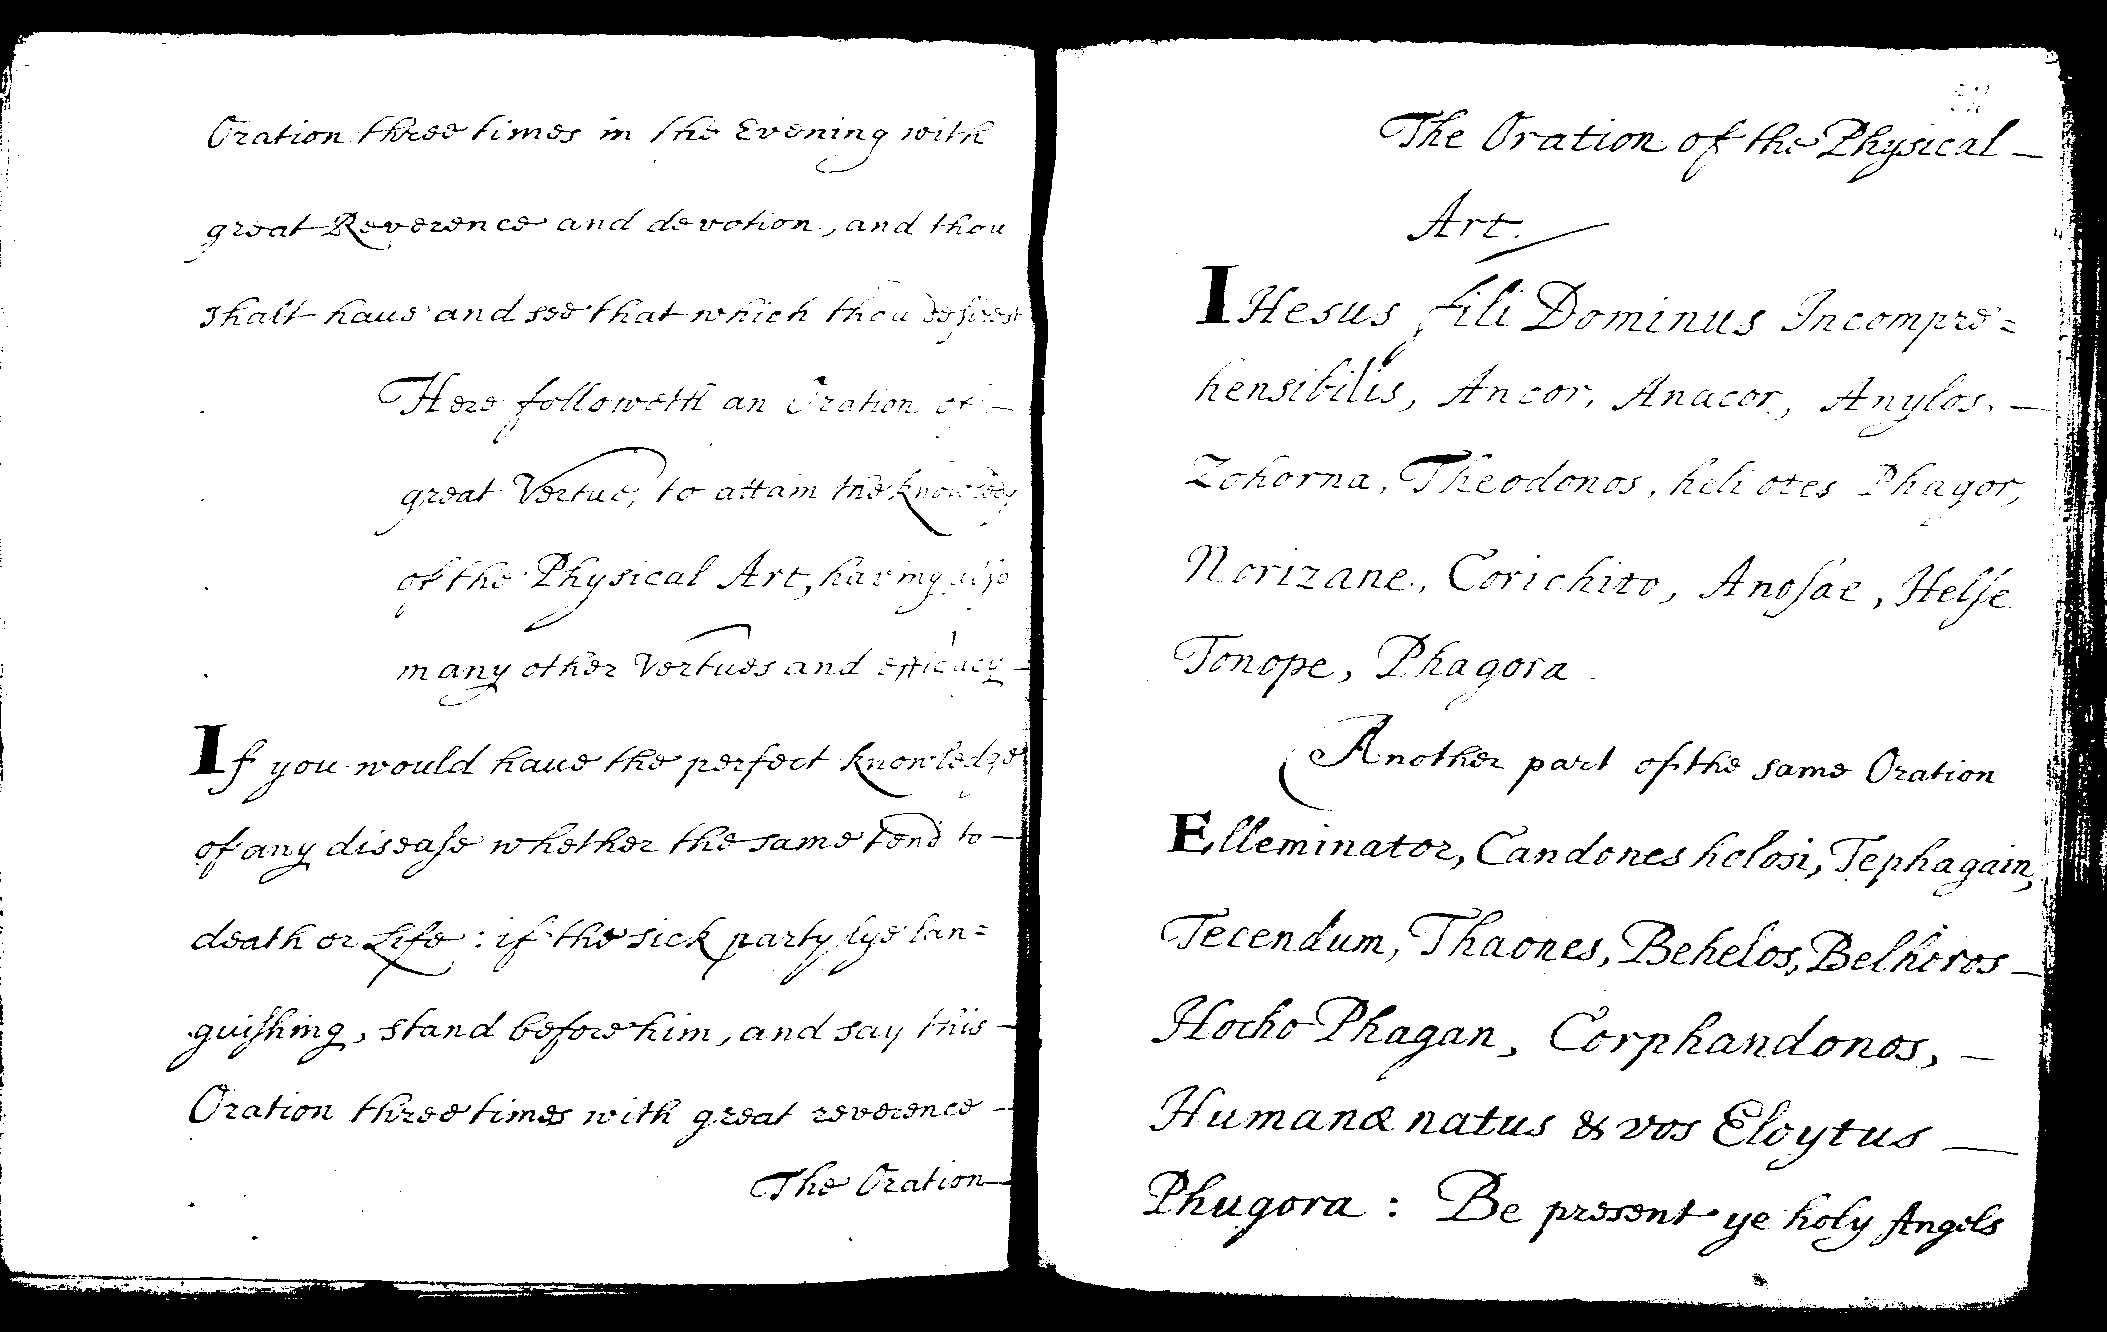 Oration three times in the Evening with
great Reverence and devotion, and thou
shalt haue and see that which thou desirest
Here followeth an Oration of —
great Vertue, to attain the knowledg
of the Physical Art, having also
many other Vertues and efficacy —
If you would haue the perfect knowledge
of any diseaſe whether the same tend to —
death or Life : if the sick party lye lan=
guiſhing, stand before him, and say this —
Oration three times with great reverence —
The Oration —
The Oration of the Physical —
Art.
IHesus fili Dominus Incompre=
hensibilis, Ancor, Anacor, Anylos, —
Zohorna, Theodonos, heliotes Phagor,
Norizane, Corichito, Anosae, Helſe
Tonope, Phagora
Another part of the same Oration
Elleminator, Candones helosi, Tephagain,
Tecendum, Thaones, Behelos, Belhoros —
Hocho Phagan, Corphandonos, —
Humanæ natus & vos Eloytus —
Phugora : Be present ye holy Angels